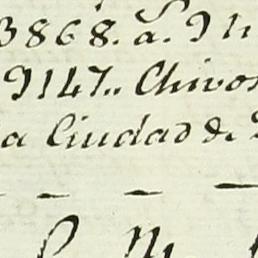 3868. a. 9
9147.. Chivos
a Ciudad de